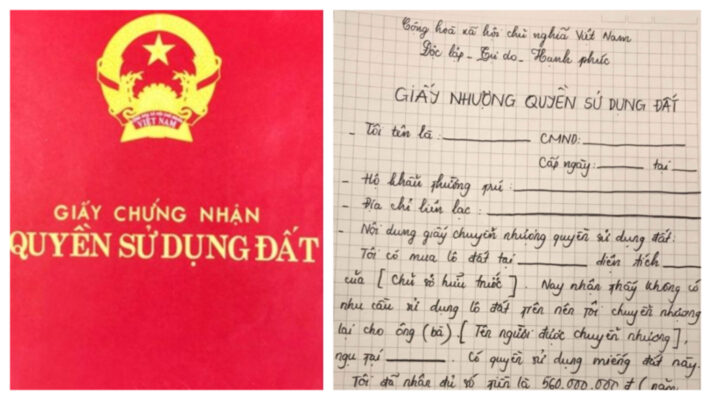 VIỆT NAM
GIẤY CHỨNG NHẬN
QUYỀN SỬ DỤNG ĐẤT
Cộng hoà xã hội chủ nghĩa Việt Nam
Độc lập - Tự do - Hạnh phúc
GIẤY NHƯỢNG QUYỀN SỬ DỤNG ĐẤT
- Tôi tên là: CMND:
Cấp ngày: tại
- Hộ khẩu thường trú:
- Địa chỉ liên lạc:
- Nội dung giấy chuyển nhượng quyền sử dụng đất:
Tôi có mua lô đất tại diện tích
của [Chủ sở hữu trước]. Nay nhận thấy không có
nhu cầu sử dụng lô đất trên nên tôi chuyển nhượng
lại cho ông (bà) [Tên người được chuyển nhượng],
ngụ tại . Có quyền sử dụng miếng đất này.
Tôi đã nhận đủ số tiền là 560.000.000 đ (năm